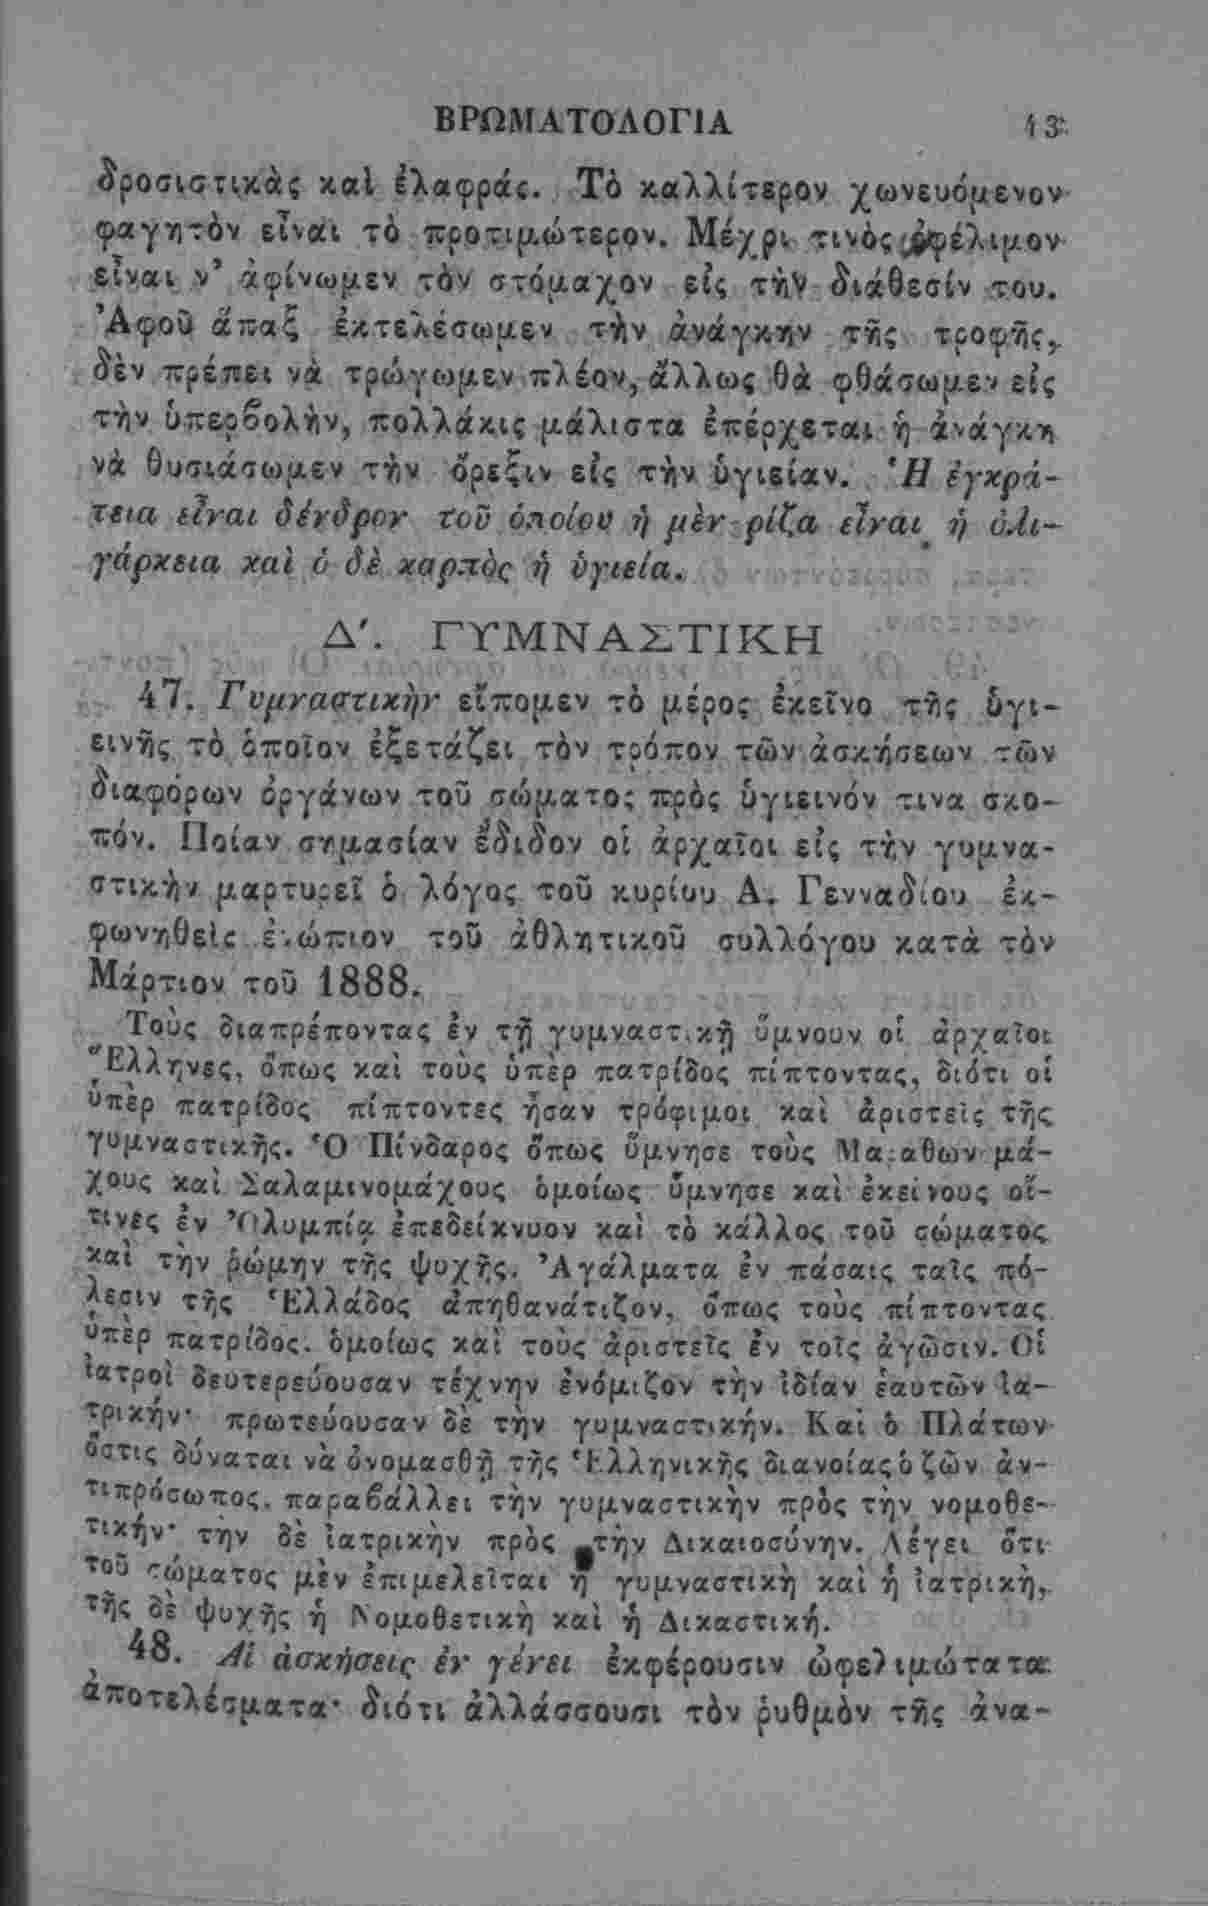 ΒΡΩΜΑΤΟΛΟΓΙΑ 43
δροσιστικὰς καὶ ἐλαφράς. Τὸ καλλίτερον χωνευόμενον
φαγητὸν εἶναι τὸ προτιμώτερον. Μέχρι τινὸς ὠφέλιμον
εἶναι ν’ ἀφίνωμεν τὸν στόμαχον εἰς τὴν διάθεσίν του.
Ἀφοῦ ἅπαξ ἐκτελέσωμεν τὴν ἀνάγκην τῆς τροφῆς,
δὲν πρέπει νὰ τρώγωμεν πλέον, ἄλλως θὰ φθάσωμεν εἰς
τὴν ὑπερβολὴν, πολλάκις μάλιστα ἐπέρχεται ἡ ἀνάγκη
νὰ θυσιάσωμεν τὴν ὄρεξιν εἰς τὴν ὑγιείαν. Ἡ ἐγκρά-
τεια εἶναι δένδρον τοῦ ὁποίου ἡ μὲν ρίζα εἶναι ἡ ὀλι-
γάρκεια καὶ ὁ δὲ καρπὸς ἡ ὑγιεία.
Δ′. ΓΥΜΝΑΣΤΙΚΗ
47. Γυμναστικὴν εἴπομεν τὸ μέρος ἐκεῖνο τῆς ὑγι-
εινῆς τὸ ὁποῖον ἐξετάζει τὸν τρόπον τῶν ἀσκήσεων τῶν
διαφόρων ὀργάνων τοῦ σώματος πρὸς ὑγιεινόν τινα σκο-
πόν. Ποίαν σημασίαν ἔδιδον οἱ ἀρχαῖοι εἰς τὴν γυμνα-
στικὴν μαρτυρεῖ ὁ λόγος τοῦ κυρίου Α. Γενναδίου ἐκ-
φωνηθεὶς ἐνώπιον τοῦ ἀθλητικοῦ συλλόγου κατὰ τὸν
Μάρτιον τοῦ 1888.
Τοὺς διαπρέποντας ἐν τῇ γυμναστικῇ ὕμνουν οἱ ἀρχαῖοι
Ἕλληνες, ὅπως καὶ τοὺς ὑπὲρ πατρίδος πίπτοντας, διότι οἱ
ὑπὲρ πατρίδος πίπτοντες ἦσαν τρόφιμοι καὶ ἀριστεῖς τῆς
γυμναστικῆς. Ὁ Πίνδαρος ὅπως ὕμνησε τοὺς Μαραθωνμά-
χους καὶ Σαλαμινομάχους ὁμοίως ὕμνησε καὶ ἐκείνους οἵ-
τινες ἐν Ὀλυμπίᾳ ἐπεδείκνυον καὶ τὸ κάλλος τοῦ σώματος
καὶ τὴν ῥώμην τῆς ψυχῆς. Ἀγάλματα ἐν πάσαις ταῖς πό-
λεσιν τῆς Ἑλλάδος ἀπηθανάτιζον, ὅπως τοὺς πίπτοντας
ὑπὲρ πατρίδος, ὁμοίως καὶ τοὺς ἀριστεῖς ἐν τοῖς ἀγῶσιν. Οἱ
ἰατροὶ δευτερεύουσαν τέχνην ἐνόμιζον τὴν ἰδίαν ἑαυτῶν ἰα-
τρικήν· πρωτεύουσαν δὲ τὴν γυμναστικήν. Καὶ ὁ Πλάτων
ὅστις δύναται νὰ ὀνομασθῇ τῆς Ἑλληνικῆς διανοίας ὁ ζῶν ἀν-
τιπρόσωπος, παραβάλλει τὴν γυμναστικὴν πρὸς τὴν νομοθε-
τικήν· τὴν δὲ ἰατρικὴν πρὸς τὴν Δικαιοσύνην. Λέγει ὅτι
τοῦ σώματος μὲν ἐπιμελεῖται ἡ γυμναστικὴ καὶ ἡ ἰατρικὴ,
τῆς δὲ ψυχῆς ἡ Νομοθετικὴ καὶ ἡ Δικαστική.
48. Αἱ ἀσκήσεις ἐν γένει ἐκφέρουσιν ὠφελιμώτατα
ἀποτελέσματα· διότι ἀλλάσσουσι τὸν ῥυθμὸν τῆς ἀνα-